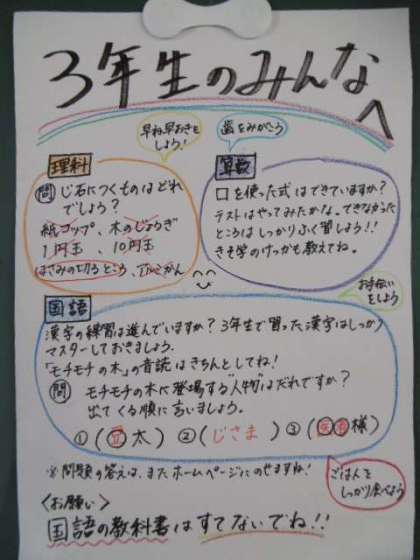 3年生のみんなへ
早ね早おきをしよう!
歯をみがこう
理科
問 じ石につくものはどれ
でしょう?
紙コップ、木のじょうぎ
1円玉、10円玉
はさみの切るところ、アルミかん
算数
□を使った式はできていますか?
テストはやってみたかな。できなかった
ところはしっかりふく習しよう!!
きそ学のけっかも教えてね。
お手伝いをしよう
国語
漢字の練習は進んでいますか?3年生で習った漢字はしっかり
マスターしておきましょう。
「モチモチの木」の音読はきちんとしてね!
問 モチモチの木に登場する"人物"はだれですか?
出てくる順に言いましょう。
①(豆太) ②(じさま) ③(医者様)
※問題の答えは、またホームページにのせますね!
ごはんを
しっかり食べよう
<お願い>
国語の教科書はすてないでね!!